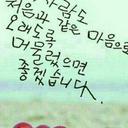 사람도
처음과 같은 마음으로
오래도록
머물렀으면
좋겠습니다.